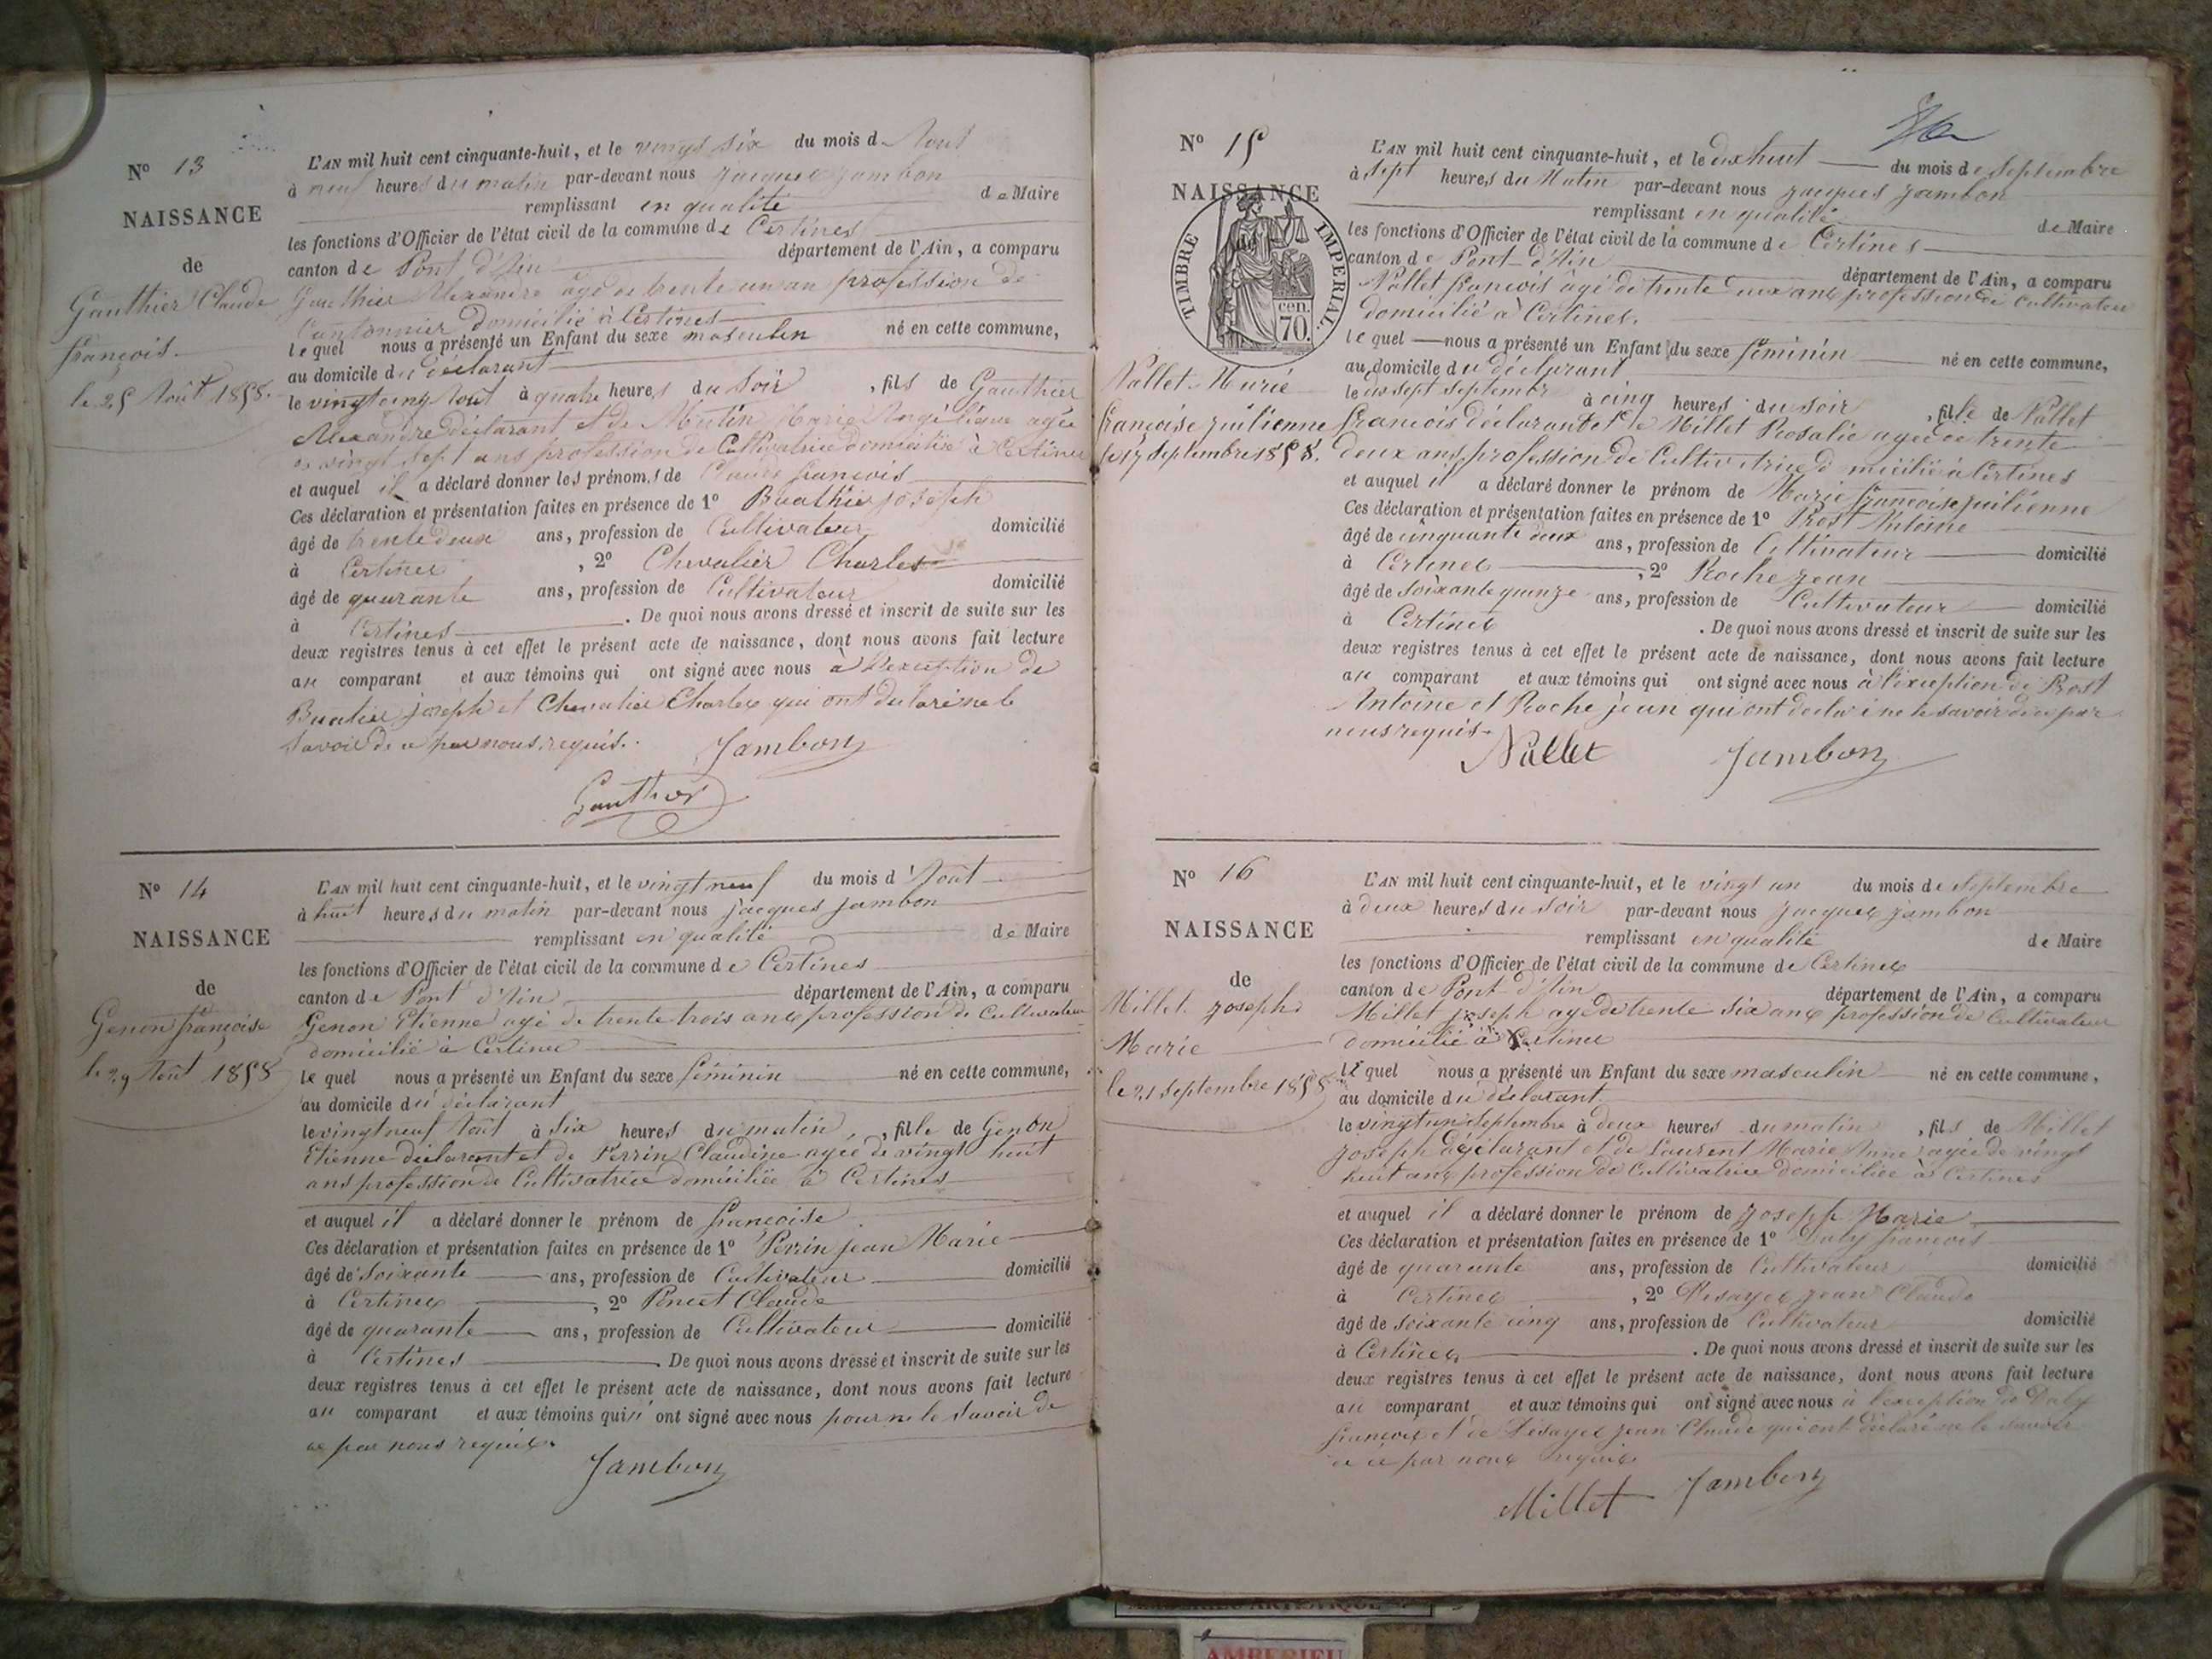 N° 13
NAISSANCE
de
Gauthier Claude
françois.
le 25 Août 1858.
L'AN mil huit cent cinquante-huit, et le vingt six du mois d'Aout
à neuf heures du matin par-devant nous jacques jambon
remplissant en qualité de Maire
les fonctions d'Officier de l'état civil de la commune de Certines
canton de Pont d'Ain département de l'Ain, a comparu
Gauthier Alexandre agé de trente un an profession de
Cantonnier domicilié à Certines
lequel nous a présenté un Enfant du sexe masculin né en cette commune,
au domicile du déclarant
le vingt cinq Aout à quatre heures du soir, fils de Gauthier
Alexandre déclarant et de Marie Angélique agée
de vingt sept ans profession de Cultivatrice domiciliée à Certines
et auquel il a déclaré donner les prénoms de Claude françois
Ces déclaration et présentation faites en présence de 1° Buathier joseph
âgé de trente deux ans, profession de Cultivateur domicilié
à Certines, 2° Chevalier Charles
âgé de quarante ans, profession de Cultivateur domicilié
à Certines. De quoi nous avons dressé et inscrit de suite sur les
deux registres tenus à cet effet le présent acte de naissance, dont nous avons fait lecture
au comparant et aux témoins qui ont signé avec nous à l'exception de
Buatier joseph et Chevalier Charles qui ont declaré ne le
savoir de ce par nous requis.
Jambon
Gauthier
N° 14
NAISSANCE
de
Genon françoise
le 29 Aout 1858
L'AN mil huit cent cinquante-huit, et le vingt neuf du mois d'Aout
à huit heures du matin par-devant nous jacques jambon
remplissant en qualité de Maire
les fonctions d'Officier de l'état civil de la commune de Certines
canton de Pont d'Ain département de l'Ain, a comparu
Genon Etienne agé de trente trois ans profession de Cultivateur
domicilié à Certines
lequel nous a présenté un Enfant du sexe féminin né en cette commune,
au domicile du déclarant
le vingt neuf Aout à six heures du matin, fille de Genon
Etienne déclarant et de Perrin Claudine agée de vingt huit
ans profession de Cultivatrice domiciliée à Certines
et auquel il a déclaré donner le prénom de françoise
Ces déclaration et présentation faites en présence de 1° Perrin jean Marie
âgé de soixante ans, profession de Cultivateur domicilié
à Certines, 2° Poncet Claude
âgé de quarante ans, profession de Cultivateur domicilié
à Certines. De quoi nous avons dressé et inscrit de suite sur les
deux registres tenus à cet effet le présent acte de naissance, dont nous avons fait lecture
au comparant et aux témoins qui n'ont signé avec nous pour ne le savoir de
ce par nous requis.
Jambon
N° 15
NAISSANCE
TIMBRE IMPERIAL.
cen.
70.
Nallet Marie
françoise julienne
le 17 septembre 1858.
L'AN mil huit cent cinquante-huit, et le dix huit du mois de septembre
à sept heures du Matin par-devant nous jacques jambon
remplissant en qualité de Maire
les fonctions d'Officier de l'état civil de la commune de Certines
canton de Pont d'Ain département de l'Ain, a comparu
Nallet françois âgé de trente deux ans profession de Cultivateur
domicilié à Certines.
lequel nous a présenté un Enfant du sexe féminin né en cette commune,
au domicile du déclarant
le dix sept septembre à cinq heures du soir, fille de Nallet
françois déclarant et de Millet Rosalie agée de trente
deux ans, profession de Cultivatrice domiciliée à Certines
et auquel il a déclaré donner le prénom de Marie françoise julienne
Ces déclaration et présentation faites en présence de 1° Prost Antoine
âgé de cinquante deux ans, profession de Cultivateur domicilié
à Certines, 2° Roche jean
âgé de soixante quinze ans, profession de Cultivateur domicilié
à Certines. De quoi nous avons dressé et inscrit de suite sur les
deux registres tenus à cet effet le présent acte de naissance, dont nous avons fait lecture
au comparant et aux témoins qui ont signé avec nous à l'exception de Prost
Antoine et Roche jean qui ont declaré ne le savoir de ce par
nous requis.
Nallet Jambon
N° 16
NAISSANCE
de
Millet joseph
Marie
le 21 septembre 1858
L'AN mil huit cent cinquante-huit, et le vingt un du mois de septembre
à deux heures du soir par-devant nous jacques jambon
remplissant en qualité de Maire
les fonctions d'Officier de l'état civil de la commune de Certines
canton de Pont d'Ain département de l'Ain, a comparu
Millet joseph agé de trente six ans profession de Cultivateur
domicilié à Certines
lequel nous a présenté un Enfant du sexe masculin né en cette commune,
au domicile du déclarant.
le vingt un septembre à deux heures du matin, fils de Millet
joseph déclarant et de Laurent Marie Anne agée de vingt
huit ans profession de Cultivatrice domiciliée à Certines
et auquel il a déclaré donner le prénom de joseph Marie
Ces déclaration et présentation faites en présence de 1° Daly françois
âgé de quarante ans, profession de Cultivateur domicilié
à Certines, 2° Desayes jean Claude
âgé de soixante cinq ans, profession de Cultivateur domicilié
à Certines. De quoi nous avons dressé et inscrit de suite sur les
deux registres tenus à cet effet le présent acte de naissance, dont nous avons fait lecture
au comparant et aux témoins qui ont signé avec nous à l'exception de Daly
françois et de Desayes jean Claude qui ont déclaré ne le savoir
de ce par nous requis
Millet Jambon